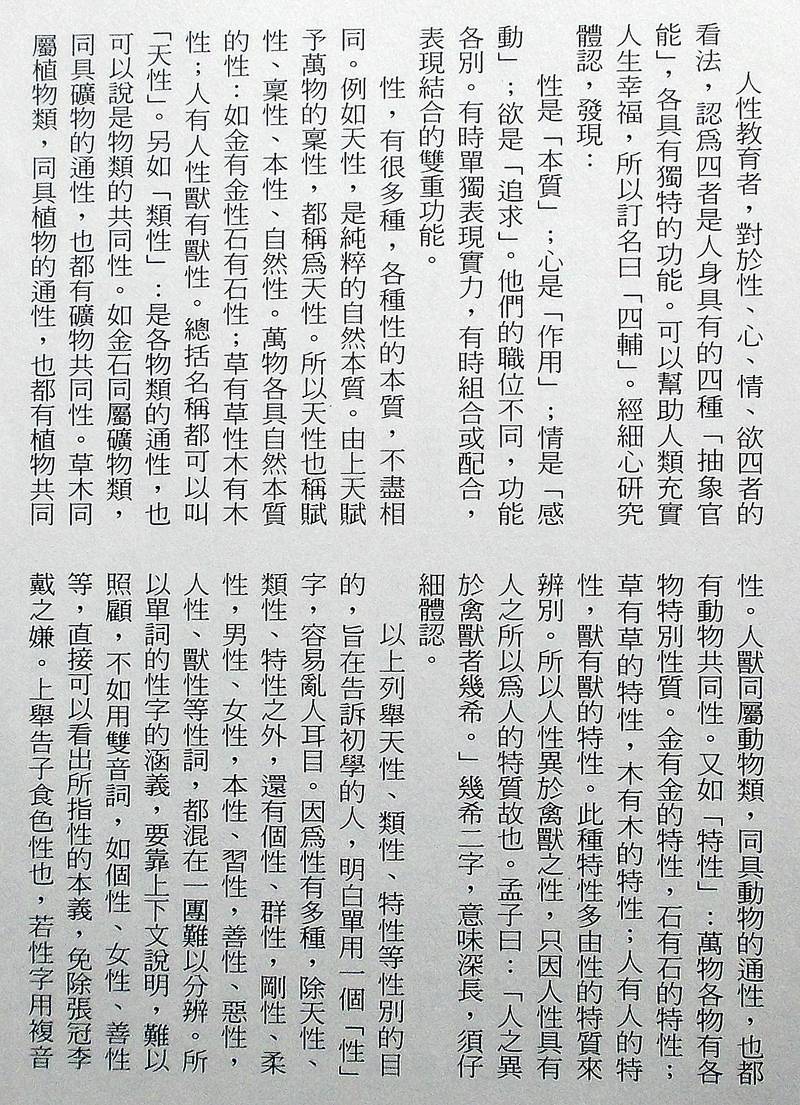 人性教育者，對於性、心、情、欲四者的
看法，認爲四者是人身具有的四種「抽象官
能」，各具有獨特的功能。可以幫助人類充實
人生幸福，所以訂名曰「四輔」。經細心研究
體認，發現：
性是「本質」；心是「作用」；情是「感
動」；欲是「追求」。他們的職位不同，功能
各別。有時單獨表現實力，有時組合或配合，
表現結合的雙重功能。
性，有很多種，各種性的本質，不盡相
同。例如天性，是純粹的自然本質。由上天賦
予萬物的稟性，都稱爲天性。所以天性也稱賦
性、稟性、本性、自然性。萬物各具自然本質
的性：如金有金性石有石性；草有草性木有木
性；人有人性獸有獸性。總括名稱都可以叫
「天性」。另如「類性」：是各物類的通性，也
可以說是物類的共同性。如金石同屬礦物類，
同具礦物的通性，也都有礦物共同性。草木同
屬植物類，同具植物的通性，也都有植物共同
性。人獸同屬動物類，同具動物的通性，也都
有動物共同性。又如「特性」：萬物各物有各
物特別性質。金有金的特性，石有石的特性；
草有草的特性，木有木的特性；人有人的特
性，獸有獸的特性。此種特性多由性的特質來
辨別。所以人性異於禽獸之性，只因人性具有
人之所以爲人的特質故也。孟子曰：「人之異
於禽獸者幾希。」幾希二字，意味深長，須仔
細體認。
以上列舉天性、類性、特性等性別的目
的，旨在告訴初學的人，明白單用一個「性」
字，容易亂人耳目。因爲性有多種，除天性、
類性、特性之外，還有個性、群性，剛性、柔
性，男性、女性，本性、習性，善性、惡性，
人性、獸性等性詞，都混在一團難以分辨。所
以單詞的性字的涵義，要靠上下文說明，難以
照顧，不如用雙音詞，如個性、女性、善性
等，直接可以看出所指性的本義，免除張冠李
戴之嫌。上舉告子食色性也，若性字用複音